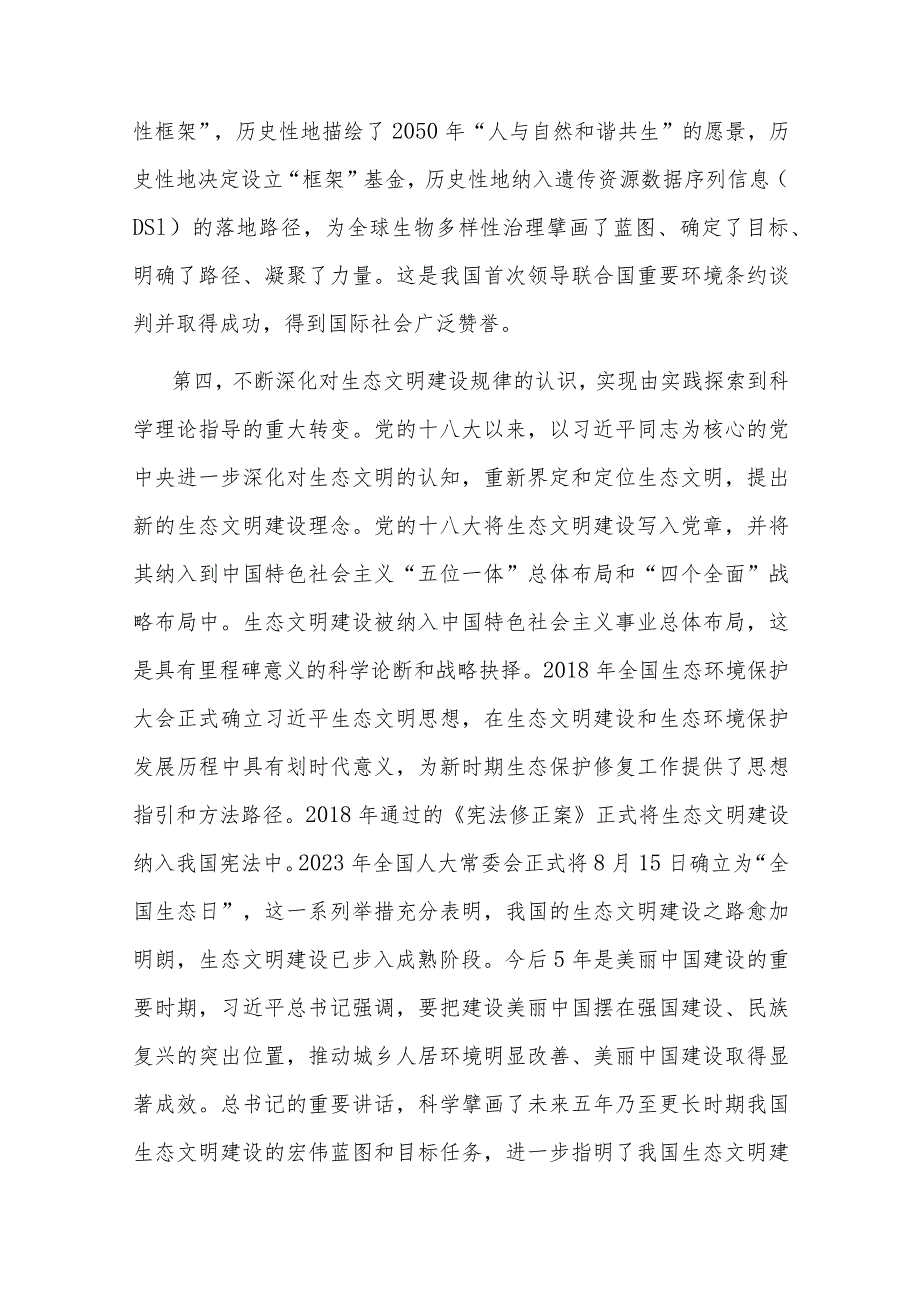 性框架”，历史性地描绘了 2050 年“人与自然和谐共生”的愿景，历
史性地决定设立“框架”基金，历史性地纳入遗传资源数据序列信息（
DSl）的落地路径，为全球生物多样性治理擘画了蓝图、确定了目标、
明确了路径、凝聚了力量。这是我国首次领导联合国重要环境条约谈
判并取得成功，得到国际社会广泛赞誉。
第四，不断深化对生态文明建设规律的认识，实现由实践探索到科
学理论指导的重大转变。党的十八大以来，以习近平同志为核心的党
中央进一步深化对生态文明的认知，重新界定和定位生态文明，提出
新的生态文明建设理念。党的十八大将生态文明建设写入党章，并将
其纳入到中国特色社会主义“五位一体”总体布局和“四个全面”战
略布局中。生态文明建设被纳入中国特色社会主义事业总体布局，这
是具有里程碑意义的科学论断和战略抉择。2018 年全国生态环境保护
大会正式确立习近平生态文明思想，在生态文明建设和生态环境保护
发展历程中具有划时代意义，为新时期生态保护修复工作提供了思想
指引和方法路径。2018 年通过的《宪法修正案》正式将生态文明建设
纳入我国宪法中。2023 年全国人大常委会正式将 8 月 15 日确立为“全
国生态日”，这一系列举措充分表明，我国的生态文明建设之路愈加
明朗，生态文明建设已步入成熟阶段。今后 5 年是美丽中国建设的重
要时期，习近平总书记强调，要把建设美丽中国摆在强国建设、民族
复兴的突出位置，推动城乡人居环境明显改善、美丽中国建设取得显
著成效。总书记的重要讲话，科学擘画了未来五年乃至更长时期我国
生态文明建设的宏伟蓝图和目标任务，进一步指明了我国生态文明建